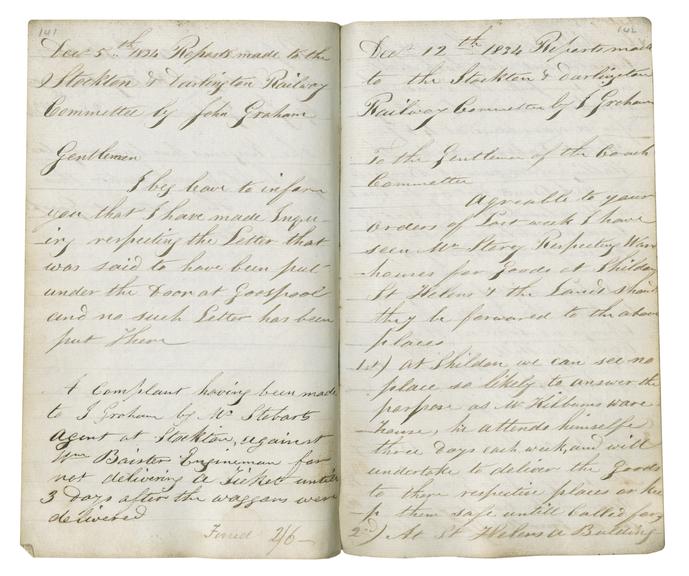 141
Decr 5th 1834 Reports made to the
Stockton & Darlington Railway
Committee by John Graham
Gentlemen
I beg leave to inform
you that I have made Inqui-
-ing respecting the Letter that
was said to have been put
under the Door at Goospool
and no such Letter has been
put There
A Complant having been made
to J Graham by Mr Stobarts
Agent at Stockton, against
Wm Baister Engineman for
not delivering a Ticket untill
3 Days after the waggons were
delivered
Fined 2/6
142
Decr 12th 1834 Reports made
to the Stockton & Darlington
Railway Committee by J Graham
To the Gentlemen of the Coach
Committee
Agreable to your
orders of Last week I have
seen Mr Storey Respecting Ware
-houses for goods at Shildon
St Helens & the Lands should
they be forwarded to the above
places
1st) At Shildon we can see no
place so likely to answer the
porpose as Mr Kilburns ware
-house, he attends himselfe
three days each week, and will
undertake to deliver the Goods
to there respective places or kee
-p them safe untill Called for
2nd) At St Helens a Building